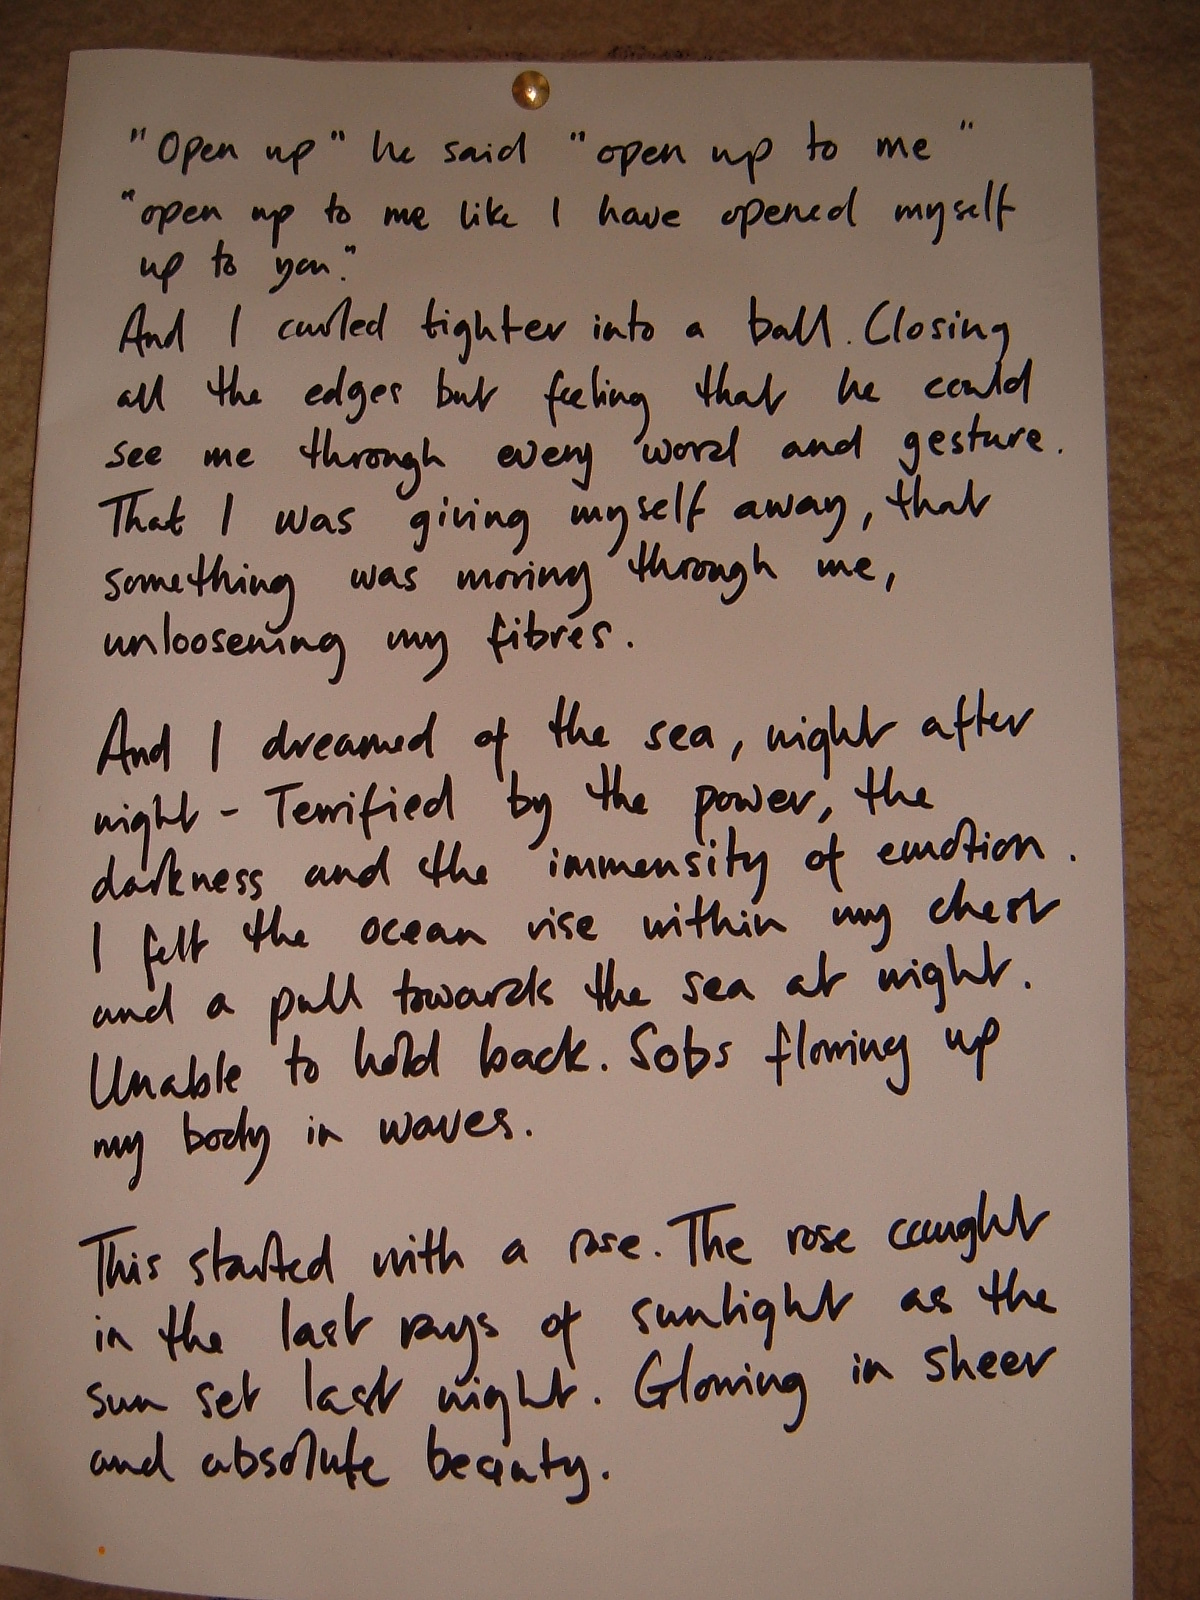 "Open up" he said "open up to me"
"open up to me like I have opened myself
up to you."
And I curled tighter into a ball. Closing
all the edges but feeling that he could
see me through every word and gesture.
That I was giving myself away, that
something was moving through me,
unloosening my fibres.
And I dreamed of the sea, night after
night - Terrified by the power, the
darkness and the immensity of emotion.
I felt the ocean rise within my chest
and a pull towards the sea at night.
Unable to hold back. Sobs flowing up
my body in waves.
This started with a rose. The rose caught
in the last rays of sunlight as the
sun set last night. Glowing in sheer
and absolute beauty.